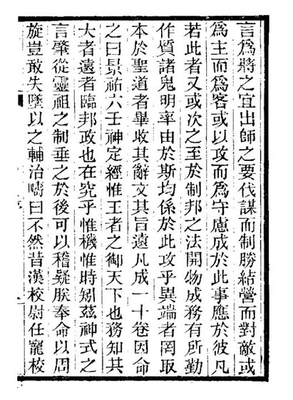 言爲將之宜出師之要伐謀而制勝結營而對敵或
爲主而爲客或以攻而爲守慮成於此事應於彼凡
若此者又或次之至於制邦之法開物成務有所勤
作質諸鬼明率由於斯均係於此攻乎異端者罔取
本於聖道者畢收其辭文其言遠凡成一十卷因命
之曰景祐六壬神定經惟王者之御天下也務知其
大者遠者臨邦政也在究乎惟機惟時矧茲神式之
言肇從靈祖之制垂之於後可以稽疑朕奉命以周
旋豈敢失墜以之輔治疇曰不然昔漢校尉任寵校